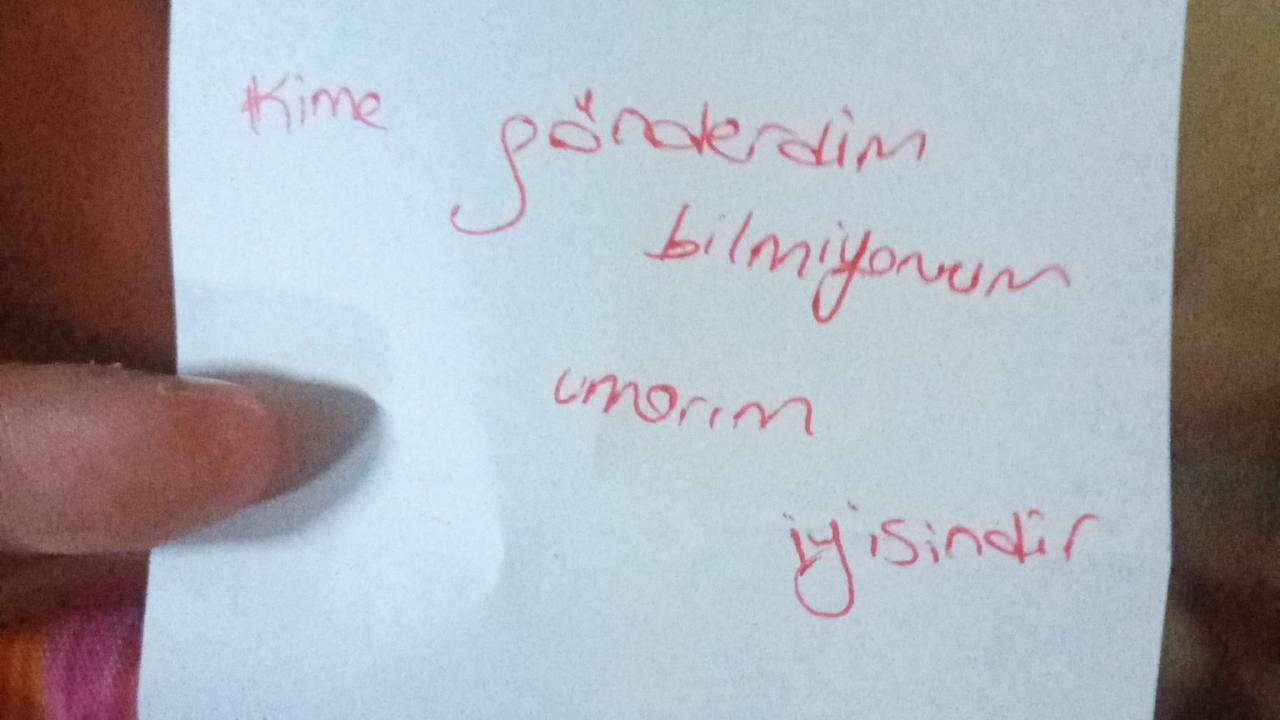 Kime gönderdim
bilmiyorum
umarım
iyisindir